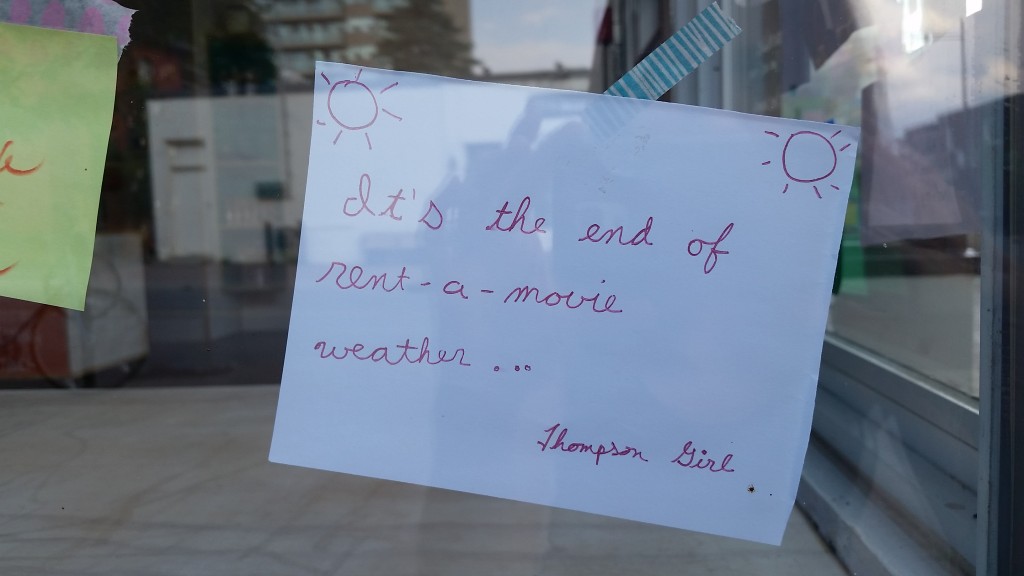 It's the end of
rent-a-movie
weather...
Thompson Girl